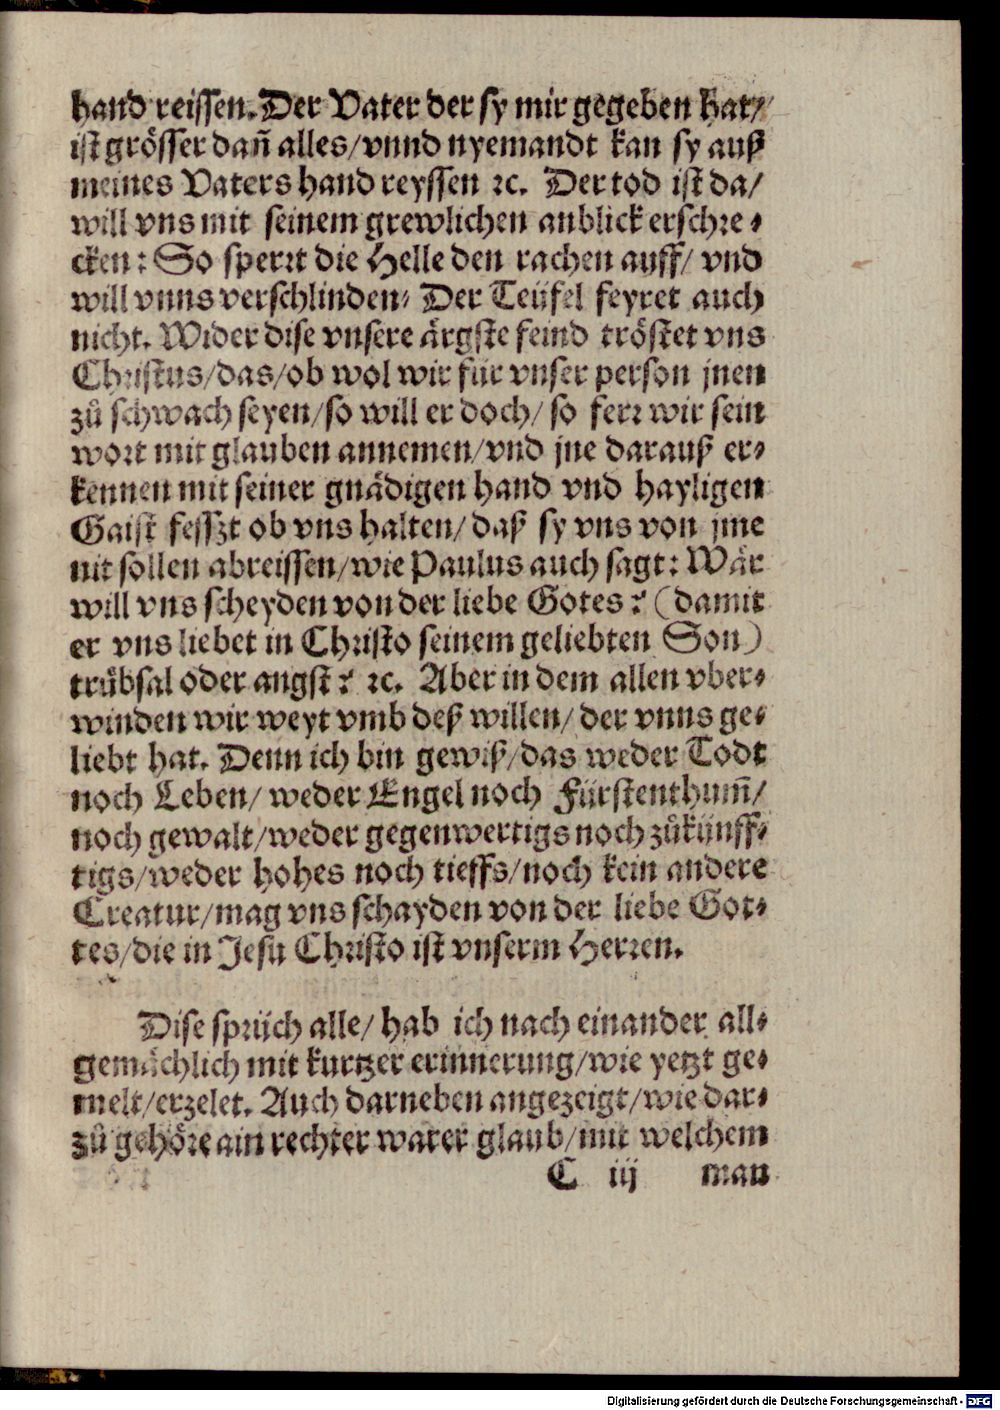 hand reissen. Der Vater der sy mir gegeben hat/
ist grösser dañ alles/vnnd nyemandt kan sy auß
meines Vaters hand reyssen ꝛc. Der tod ist da/
will vns mit seinem grewlichen anblick erschre⸗
cken: So sperrt die Helle den rachen auff/ vnd
will vnns verschlinden⸗ Der Teüfel feyret auch
nicht. Wider dise vnsere ärgste feind tröstet vns
Christus/das/ob wol wir für vnser person jnen
zů schwach seyen/so will er doch/ so ferr wir sein
wort mit glauben annemen/vnd jne darauß er⸗
kennen mit seiner gnädigen hand vnd hayligen
Gaist fesszt ob vns halten/daß sy vns von jme
nit sollen abreissen/wie Paulus auch sagt: Wär
will vns scheyden von der liebe Gotes? (damit
er vns liebet in Christo seinem geliebten Son)
trübsal oder angst? ꝛc. Aber in dem allen vber⸗
winden wir weyt vmb deß willen/ der vnns ge⸗
liebt hat. Denn ich bin gewiß/das weder Todt
noch Leben/ weder Engel noch Fürstenthum̃/
noch gewalt/weder gegenwertigs noch zůkünff⸗
tigs/weder hohes noch tieffs/noch kein andere
Creatur/mag vns schayden von der liebe Got⸗
tes/die in Jesu Christo ist vnserm Herren.
Dise sprüch alle/ hab ich nach einander all⸗
gemächlich mit kurtzer erinnerung/wie yetzt ge⸗
melt/erzelet. Auch darneben angezeigt/wie dar⸗
zů gehöre ain rechter warer glaub/mit welchem
C iij man
Digitalisierung gefördert durch die Deutsche Forschungsgemeinschaft - DFG